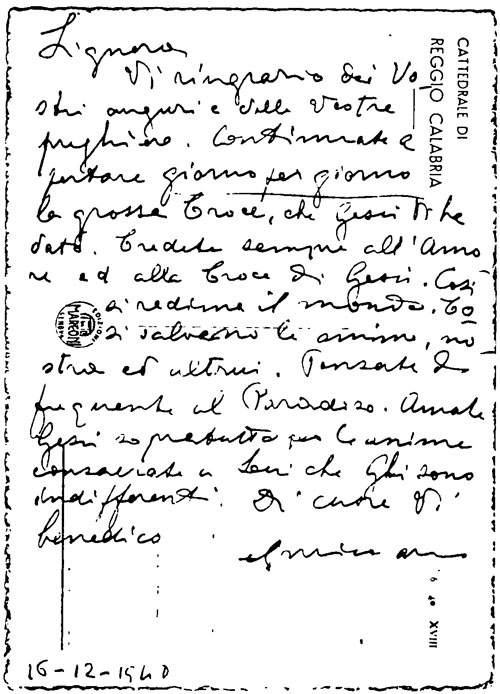 Signora
Vi ringrazio dei Vo
stri auguri e delle vostre
preghiere. Continuate a
portare giorno per giorno
la grossa Croce, che Gesù Vi ha
dato. Credete sempre all'Amo
re ed alla Croce di Gesù. Così
si redime il mondo. Co
si salvano le anime, no
stra ed altrui. Pensate di
frequente al Paradiso. Amate
Gesù sopratutto per le anime
consacrate a Lui che Gli sono
indifferenti. Di cuore Vi
benedico
16-12-1940
CATTEDRALE DI
REGGIO CALABRIA
EDIZIONI
MARCONI
GENOVA
6 40 XVIII